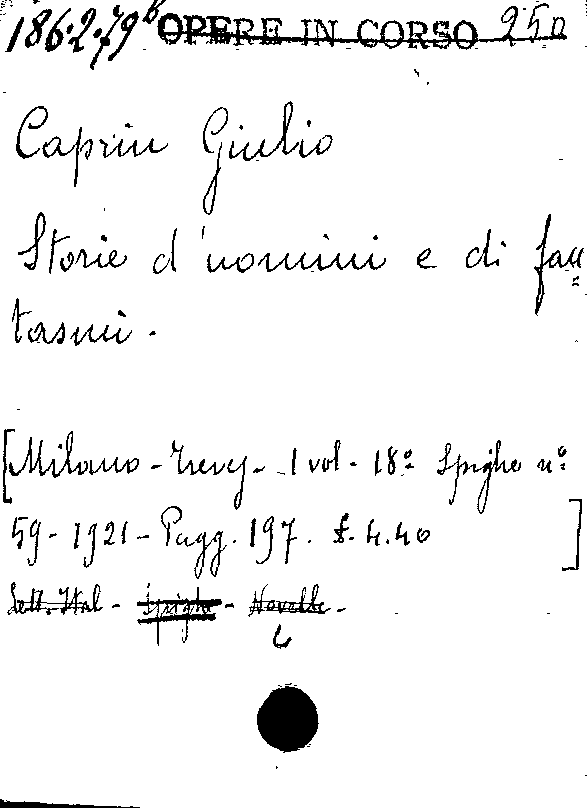 186.2.79 b OPERE IN CORSO 250
Caprin Giulio
Storie d'uomini e di fan
tasmi.
[Milano - Treves - 1 vol. 18º Spighe nº
59 - 1921 - Pagg. 197. £. 4.40 ]
Lett. Ital - Spighe - Novelle -